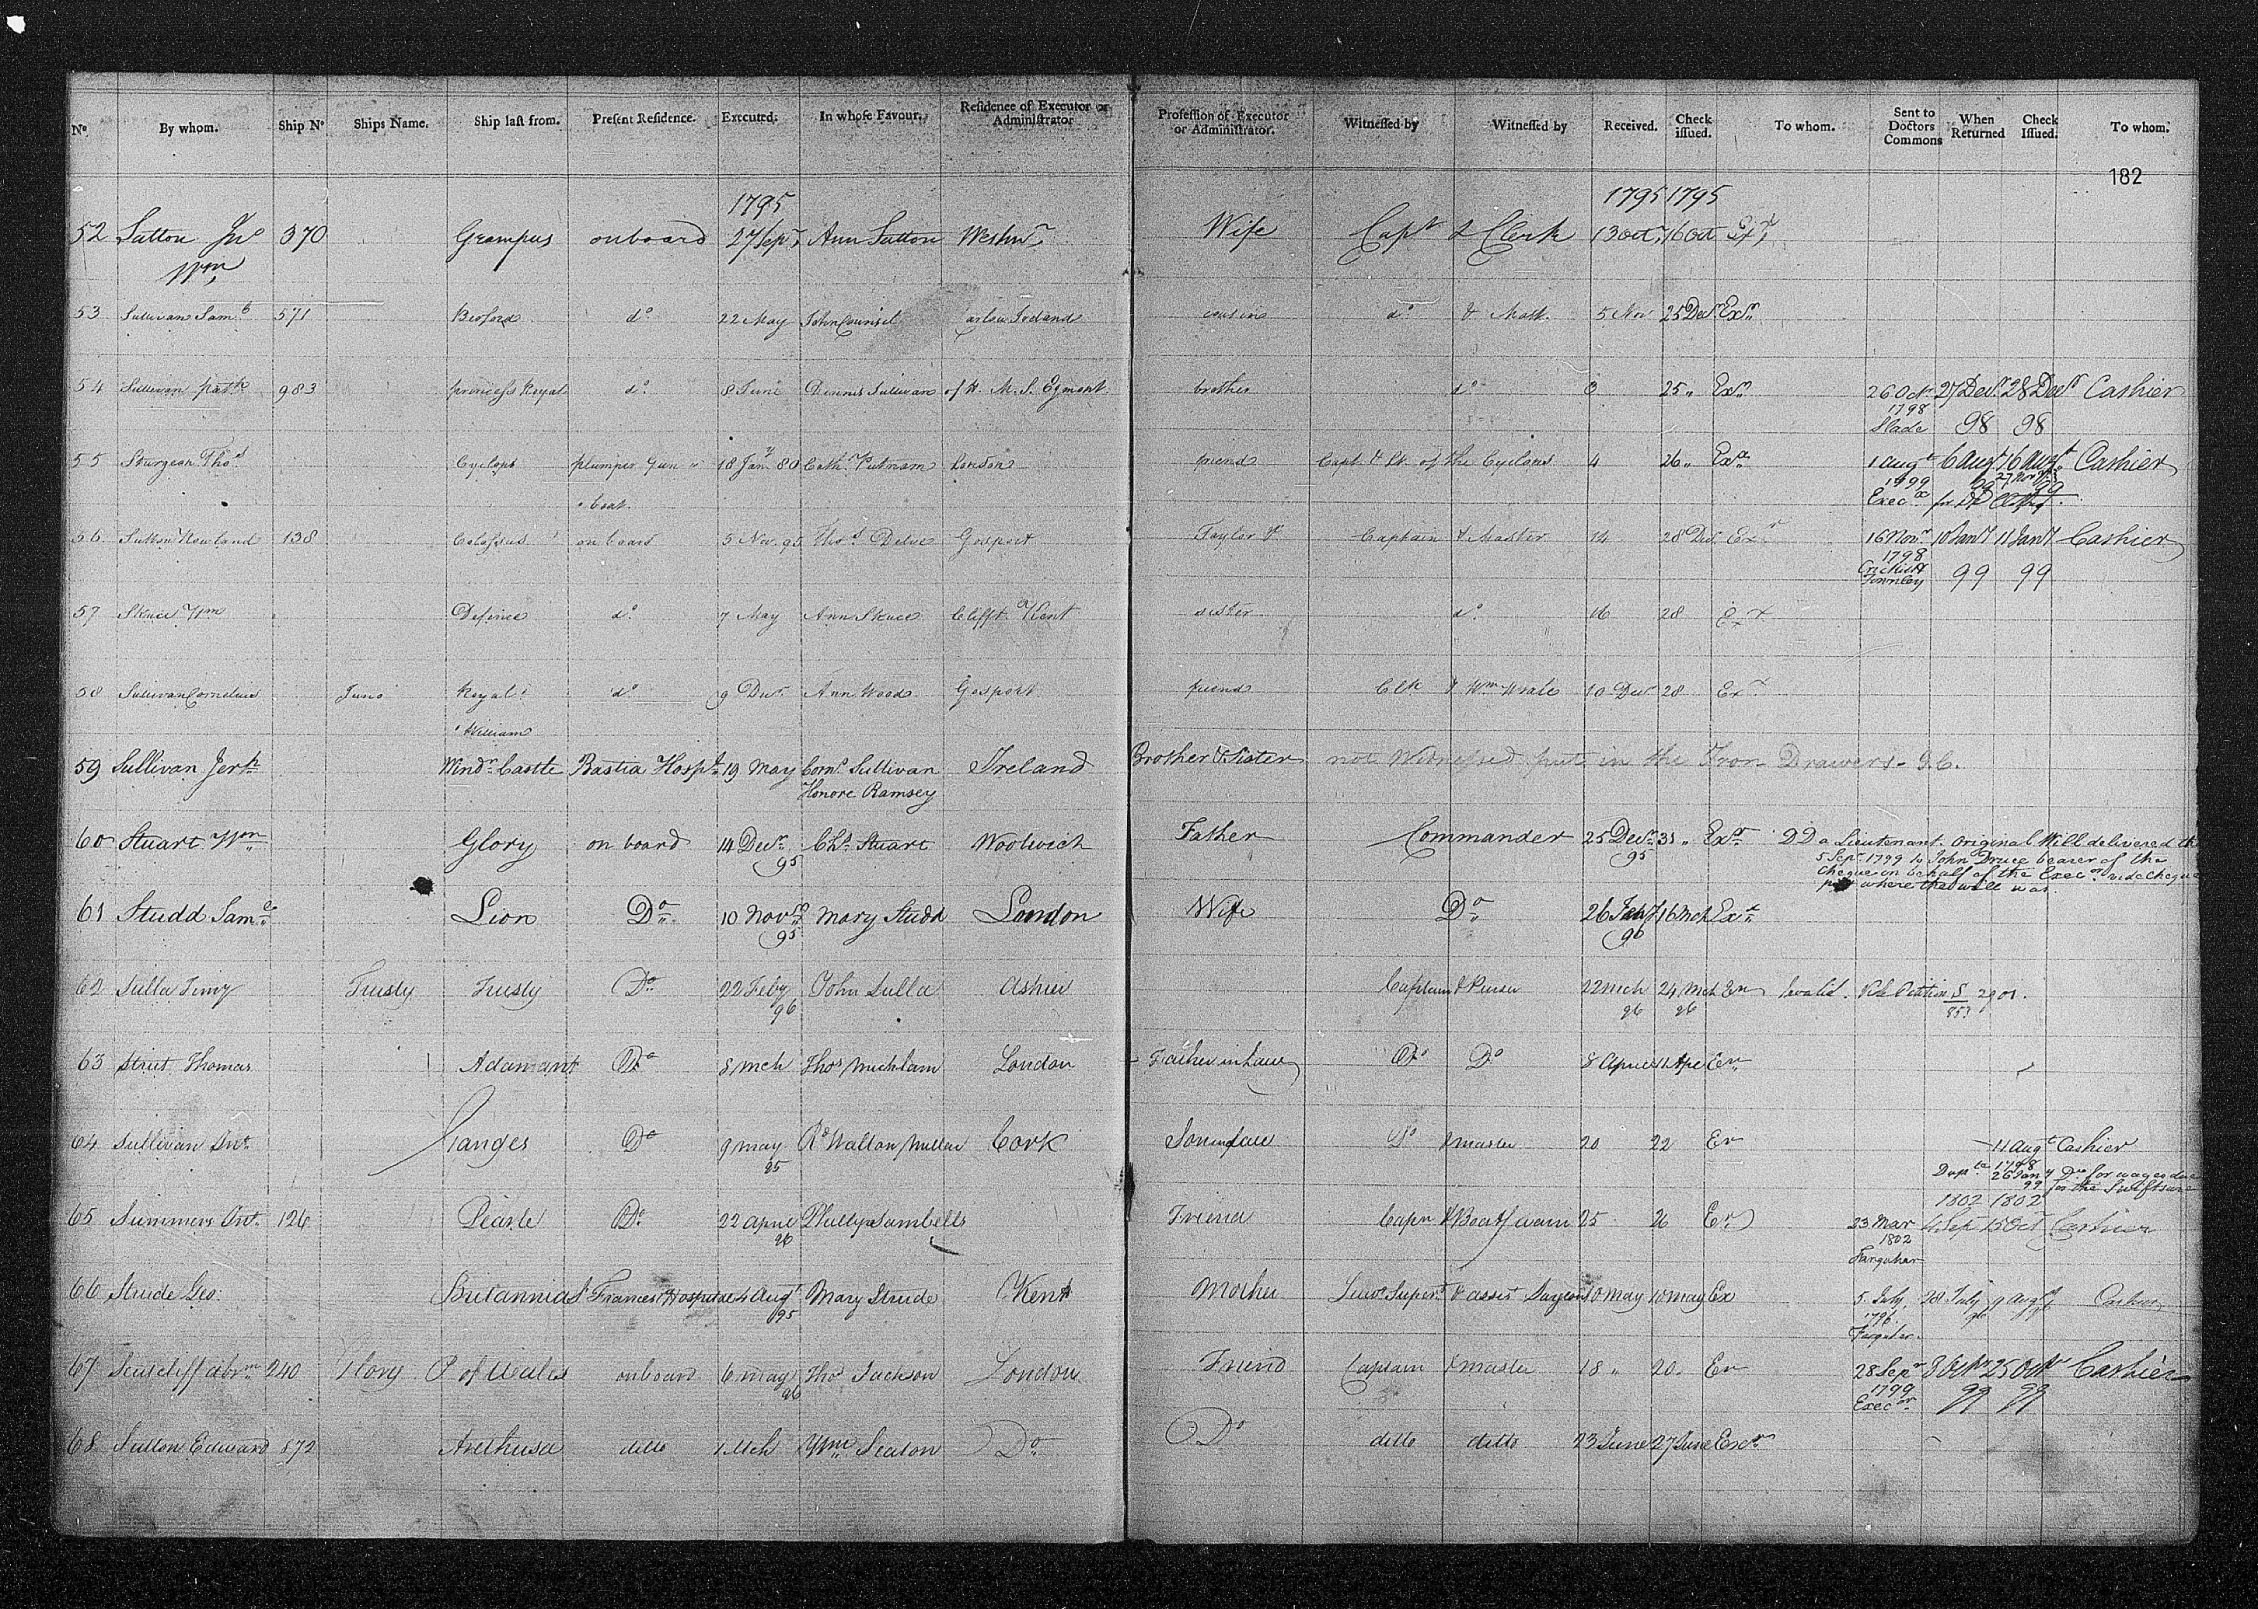 Nº By whom. Ship Nº Ships Name. Ship last from. Present Residence. Executed. In whose Favour. Residence of Executor or Administrator Profession of Executor or Administrator. Witnessed by Witnessed by Received. Check issued. To whom. Sent to Doctors Commons When Returned Check Issued. To whom.
182
1795 1795 1795
52 Sutton Jnº 370 Grampus onboard 27 Sepr Ann Sutton Westmr Wife Capt & Clerk 13 Octr 16 Oct Exx
Wm
53 Sullivan Saml 571 Bedford do 22 May John Counsel Carlow Ireland cousin do & Mastr 5 Nov 25 Decr Exr
54 Sullivan Patk 983 princess Royal do 8 June Dennis Sullivan of H. M. S. Egmont brother do 3 25 " Exr 26 Octr 27 Decr 28 Decr Cashier
1798
Slade 98 98
55 Sturgeon Thos Cyclops plumper Gun 18 Jany 80 Cath. Putnam London friend Capt & Lt. of the Cyclops 4 26 " Exx 1 Augt 6 Augt 16 Augt Cashier
boat 1799 99 27 Nov 99
Execx for
56 Sutton Rowland 138 Colossus on board 5 Nov. 95 Thos Delve Gosport Taylor Captain & Master 14 28 Decr Exr 16 Novr 10 Jany 11 Jany Cashier
1798
Crickitt
Townley 99 99
57 Skuce Wm Defince do 7 May Ann Skuce Clifft Kent sister do 16 28 Exx
58 Sullivan Cornelius Juno Royal do 9 Decr Ann Wood Gosport friend Clk & Wm Wrale 10 Decr 28 Exx
William
59 Sullivan Jerh Windr Castle Bastia Hospl 19 May Corns Sullivan Ireland Brother & Sister not Witnessed put in the Iron Drawers - J.C.
Honore Ramsey
60 Stuart Wm Glory on board 14 Decr Chs Stuart Woolwich Father Commander 25 Decr 31 " Exor DD a Lieutenant. Original Will delivered the
95 95 5 Sepr 1799 to John Druce bearer of the
cheque on behalf of the Execor vide cheque
where the will was
61 Studd Saml Lion Do 10 Novr Mary Studd London Wife Do 26 Jany 16 Mch Exx
95 96
62 Sulla Timy Trusty Trusty Do 22 Feby John Sulla Captain & Purser 22 Mch 24 Mch Exr Invalid. Petition S 2901.
96 96 96 853
63 Strut Thomas Adamant Do 8 Mch Thos Mucklam London Father in Law Do Do 8 April 11 Apl Exr
64 Sullivan Dnl Ganges Do 9 May Rd Walton Cork Son in Law Do & master 20 22 Exr 11 Augt Cashier
95 Dupte 1798
26 Jany Do for wages due
99 for the Swiftsure
1802 1802
65 Summers Ant. 126 Pearle Do 22 April Phillys Sambells Friend Capn & Boatswain 25 26 Exr 23 Mar 4 Sep 15 Oct Cashier
96 1802
Farquhar
66 Strude Geo. Britannia St Frances Hospital 4 Augt Mary Strude Kent Mother Super & assist Surgeon 10 May 10 May Ex 5 July 28 July 9 Augt Cashier
95 1796 96
67 Seutcliff Abrm 240 Glory P of Wales onboard 6 May Thos Jackson London Friend Captain & master 18 " 20 Exr 28 Sepr 3 Octr 25 Octr Cashier
96 1799 99 99
Execor
68 Sutton Edward 572 Arethusa ditto 1 Mch Wm Seaton Do Do ditto ditto 23 June 27 June Exor